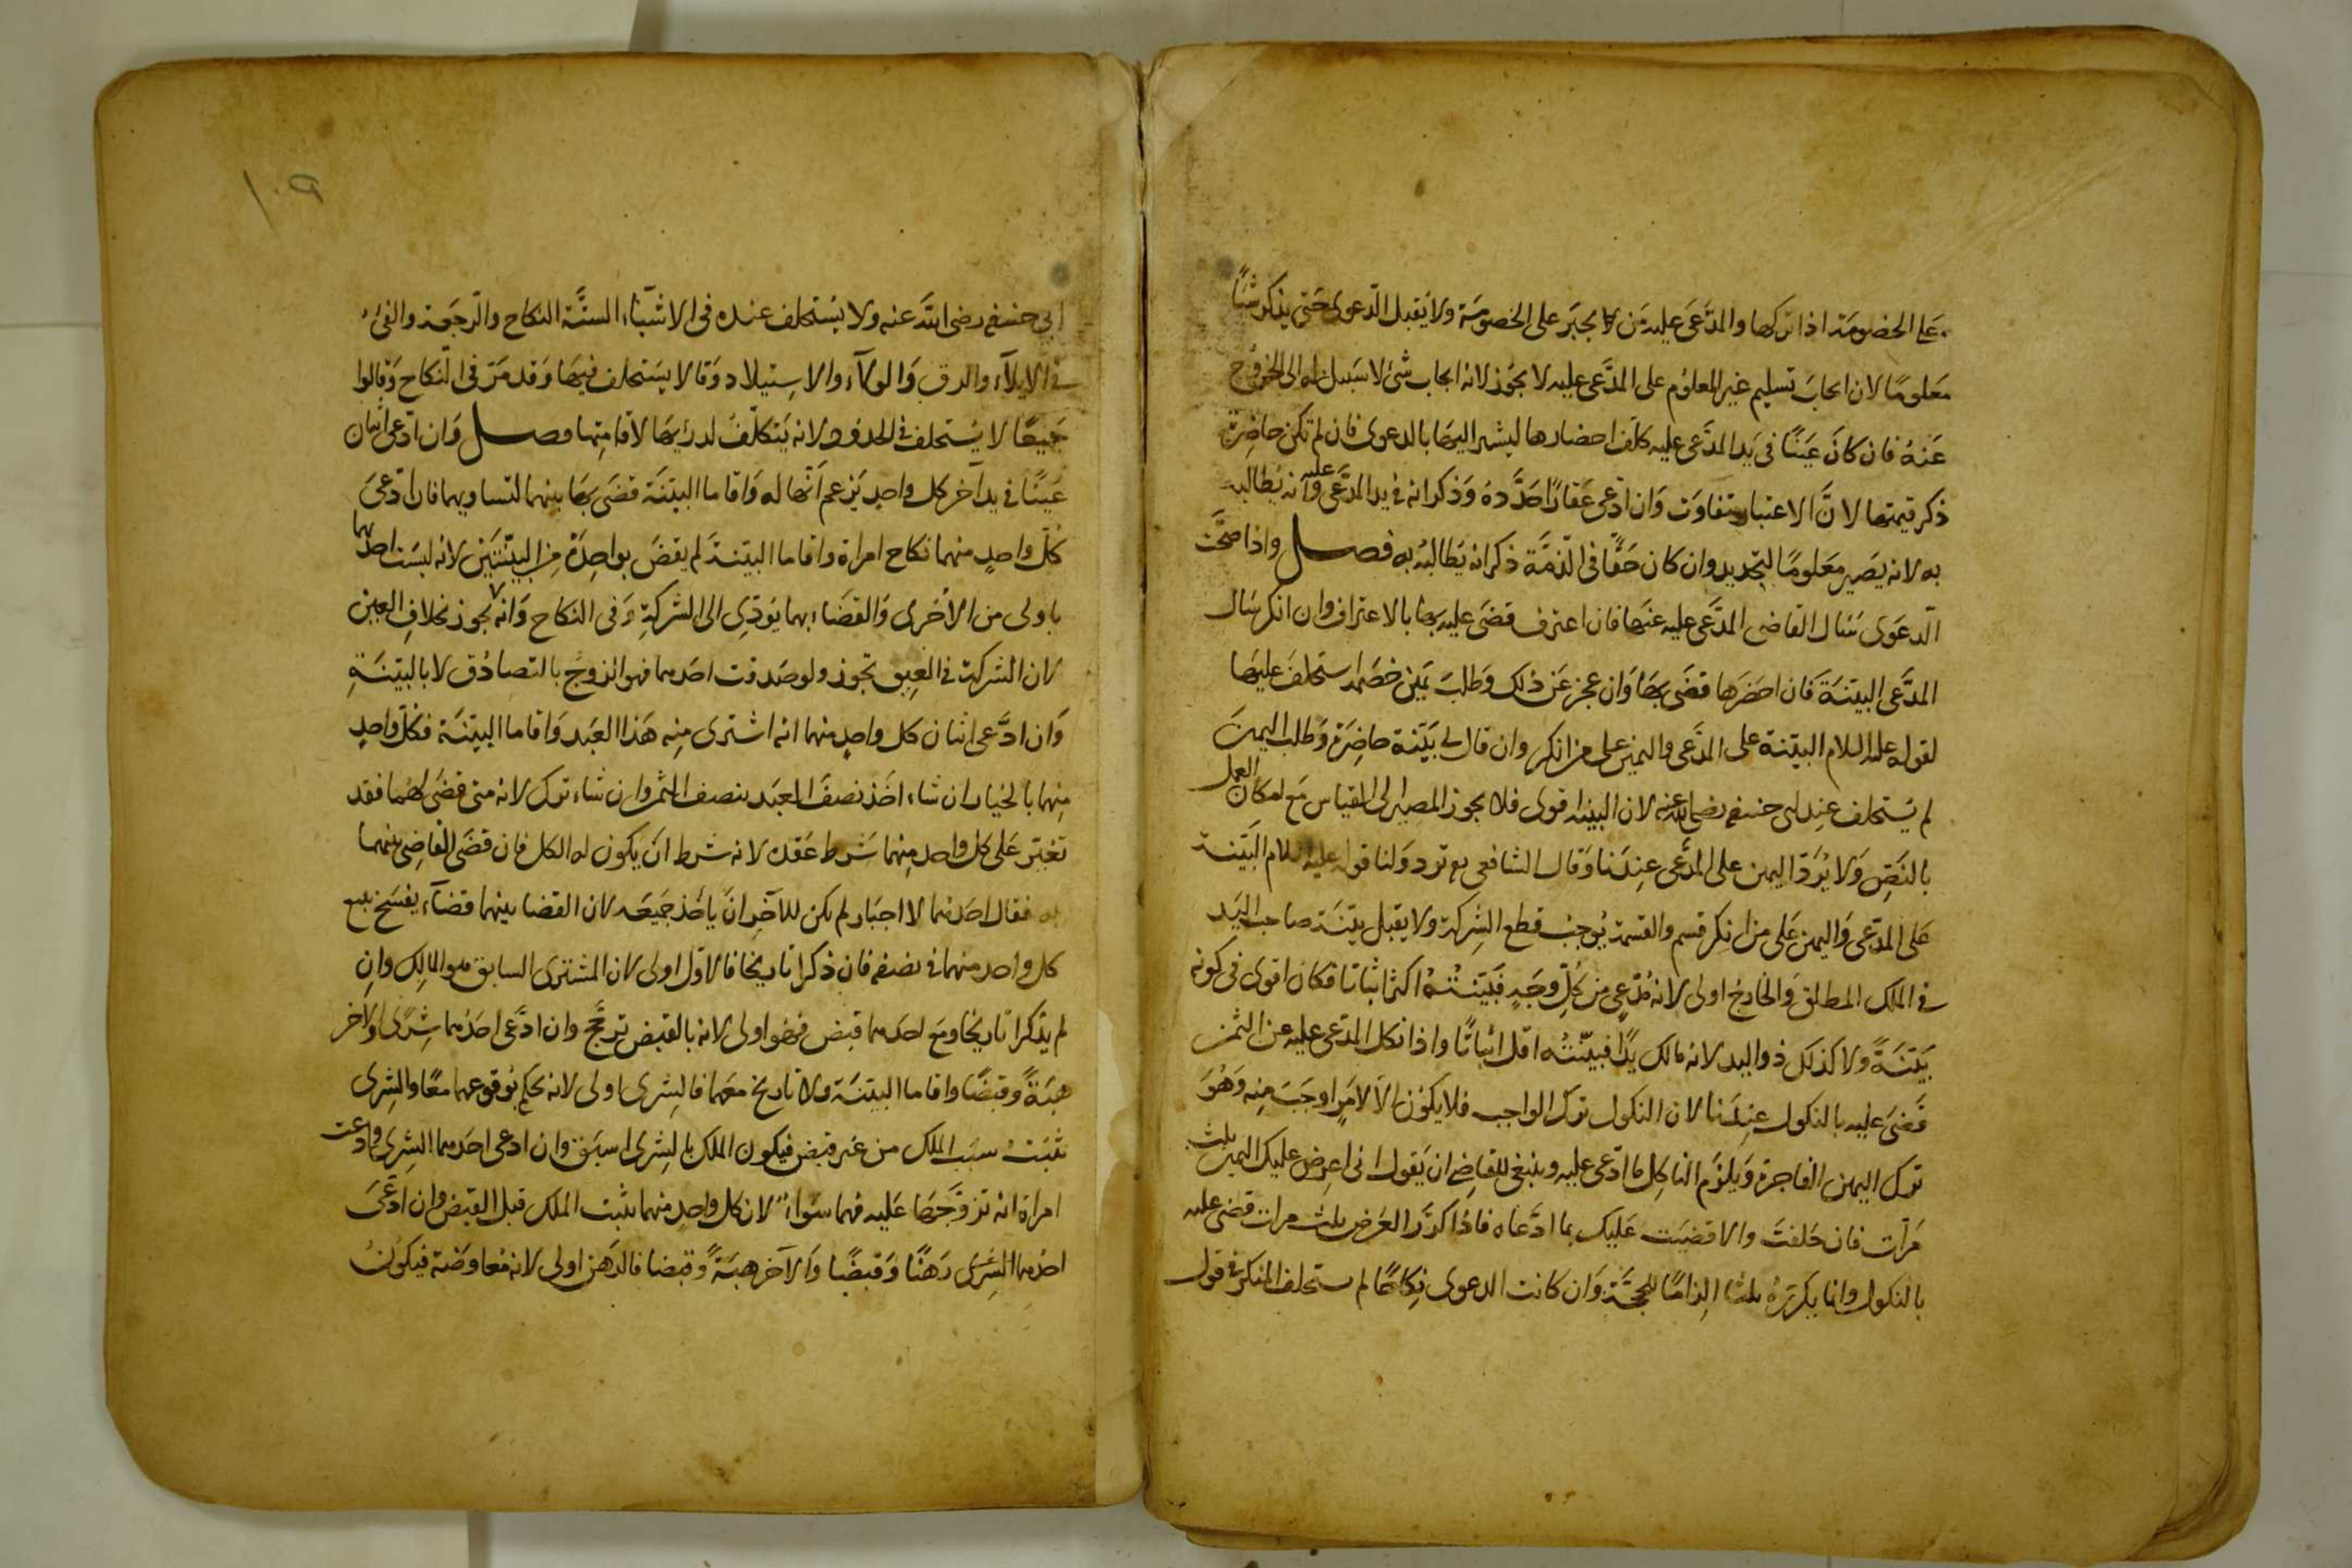 على الخصومة اذا تركها والمدَّعى عليه مَن لا يجبَر على الخصومة ولا يُقبل الدّعوى حَتى يذكر شيًا
مَعلومًا لان ايجابَ تسليم غير المعلوم على المدَّعى عليه لا يجُوز لانه ايجاب شئ لا سَبيل له الى الخروج
عَنهُ فان كانَ عَينًا فى يَد المدَّعى عليه كلّف احضارها ليشير اليهَا بالدعوى فان لم تكن حاضِرة
ذكر قيمتها لانَّ الاعتبار يتفاوَت وَان ادّعى عَقارًا حَدَّدهُ وَذكر انه فى يد المدَّعى عليه وَانه يُطالبه
به لانه يَصير مَعلومًا بالتحديد وان كان حَقًّا فى الذّمَّة ذكر انه يَطالبُه به فصل واذا صحَّت
الدّعوَى سَال القاضى المدَّعى عليه عنهَا فان اعترف قضَى عليه بهَا بالاعتراف وان انكر سَال
المدَّعى البينَة فَان احضَرها قضَى بهَا وَان عجز عَن ذلك وَطلبَ يَمين خصَمه استحلفَ عليهَا
لقوله عليه السلام البيّنة على المدَّعى واليمين على من انكر وان قال لى بَيّنة حاضِرة وَطلب اليمينَ
لم يُستحلف عِند ابى حنيفة رضى الله عنه لان البينه اقوى فلا يجوز المصير الى القياس مَع امكان العمل
بالنَصّ وَلا يُرَدّ اليمين على المدَّعى عِندَنا وَقال الشافعى يع ترد وَلنا قوله عليه السلام البَيّنة
عَلى المدّعى وَاليمين عَلى من انكر قسم والقسمة يُوجبُ قطع الشِركة ولا يقبل بيّنَة صاحب اليَد
فى الملك المطلق وَالخارجُ اولى لانه مُدّعٍ من كُلّ وَجَهٍ فَبَيّنتُهُ اكثر اثباتا فكان اقوى فى كونه
بَيّنَةً ولا كذلك ذو اليد لانه مالك يدًا فبيّنتُه اقل اثباتًا واذا نكل المدّعى عليه عن الثمن
قَضىَ عليه بالنكول عِندَنا لان النكول ترك الواجب فلا يكوُن الّا لامَرٍ اوجَبَ مِنه وَهُوَ
ترك اليمين الفاجرة وَيلزَم الناكِل ما ادّعى عليه وينبغى للقاضِى ان يَقول انى اعرِض عليك اليمين ثلث
مَرآت فان حَلفتَ والا قضيَت عَليك بما ادَّعاه فاذُا كرَّر العَرض ثلث مرات قضى عليه
بالنكول وانما يكررَهُ ثلثا الِزامًا للحجَّة وَان كانت الدعوى نِكاحًا لم يستحلف المنكر فى قول
ابى حنيفة رضى الله عنه ولا يُستحلف عنده فى الاشيآء الستَّة النكاح والرّجعَة والفئ
فى الايلآء والرق وَالولآء والاستيلاد وَقالا يستَحلف فيهَا وَقد مَرّ فى النّكاح وَقالوا
جَميعًا لا يُستحلف فى الحدُود لانه يَتكلّفُ لدرئهَا لاقامِتها فصل وَان ادّعى اثنان
عَينًا فى يد آخر كل واحدٍ يَزعم اَنّها له وَاقاما البيّنَة قضَى بهَا بينهما لتساويهما فان ادّعىَ
كلّ واحدٍ منهما نكاح امراة واقاما البيّنةَ لم يقضَ بواحدَة مِن البيّنتَيَن لانه ليسَت احدٮهما
باولى من الأخرى وَالقضَاء بهما يؤدِى الى الشركةِ وَفى النكاح وَانه لا يجوز بخلافِ العين
لان الشركة فى العين تجوز ولو صَدقت احدهما فهو الزوجُ بالتصادُق لا بالبيّنةِ
وَان ادَّعى اثنان كل واحدٍ منهما انه اشترى مِنِه هَذا العَبد وَاقاما البيّنَة فكلّ واحدٍ
مِنهما بالخيار ان شاء اخَذ نصفَ العبَد بنصف الثمن وان شاء ترك لانه متى قضَى لهُما فقد
تغيّر عَلى كل واحد مِنهما شَرط عَقده لانه شرط انَ يكون له الكل فان قضَى القاضِى بينهما
به فقال احَدهما لا اختار لم يكن للآخِر انَ ياخُذ جَميعَه لان القضا بينهما قضآء يفسَخ بيع
كل واحد منهما فى نصفه فان ذكرا تاريخا فالاوّل اولى لان المشترى السابق هو المالِك وانِ
لم يذكرا تاريخا ومَع احدهما قبض فهُو اولى لانه بالقبض ترجَّح وان ادَّعى احَدُهما شِرًى والآخر
هبَةً وَقبضًا واقاما البيّنَة ولا تاريخ معَهما فالشِرى اولى لانه يحكم بوُقوعهما معًا والشِرى
يثبتُ سَبب الملك من غير قبض فيكون الملك بالشِرى اسبَق وان ادعى احَدهما الشِرى وادّعت
امراة انه تزوّجَها عَليه فهما سَواءٌ لان كل واحدٍ منهما يثبت الملك قبل القبض وان ادّعىَ
احدُهما الشِرى رَهنًا وَقبضًا وَالآخر هِبَةً وَقبضا فالرَهن اولى لانه مُعاوضَة فيكوُنُ
١٠٩